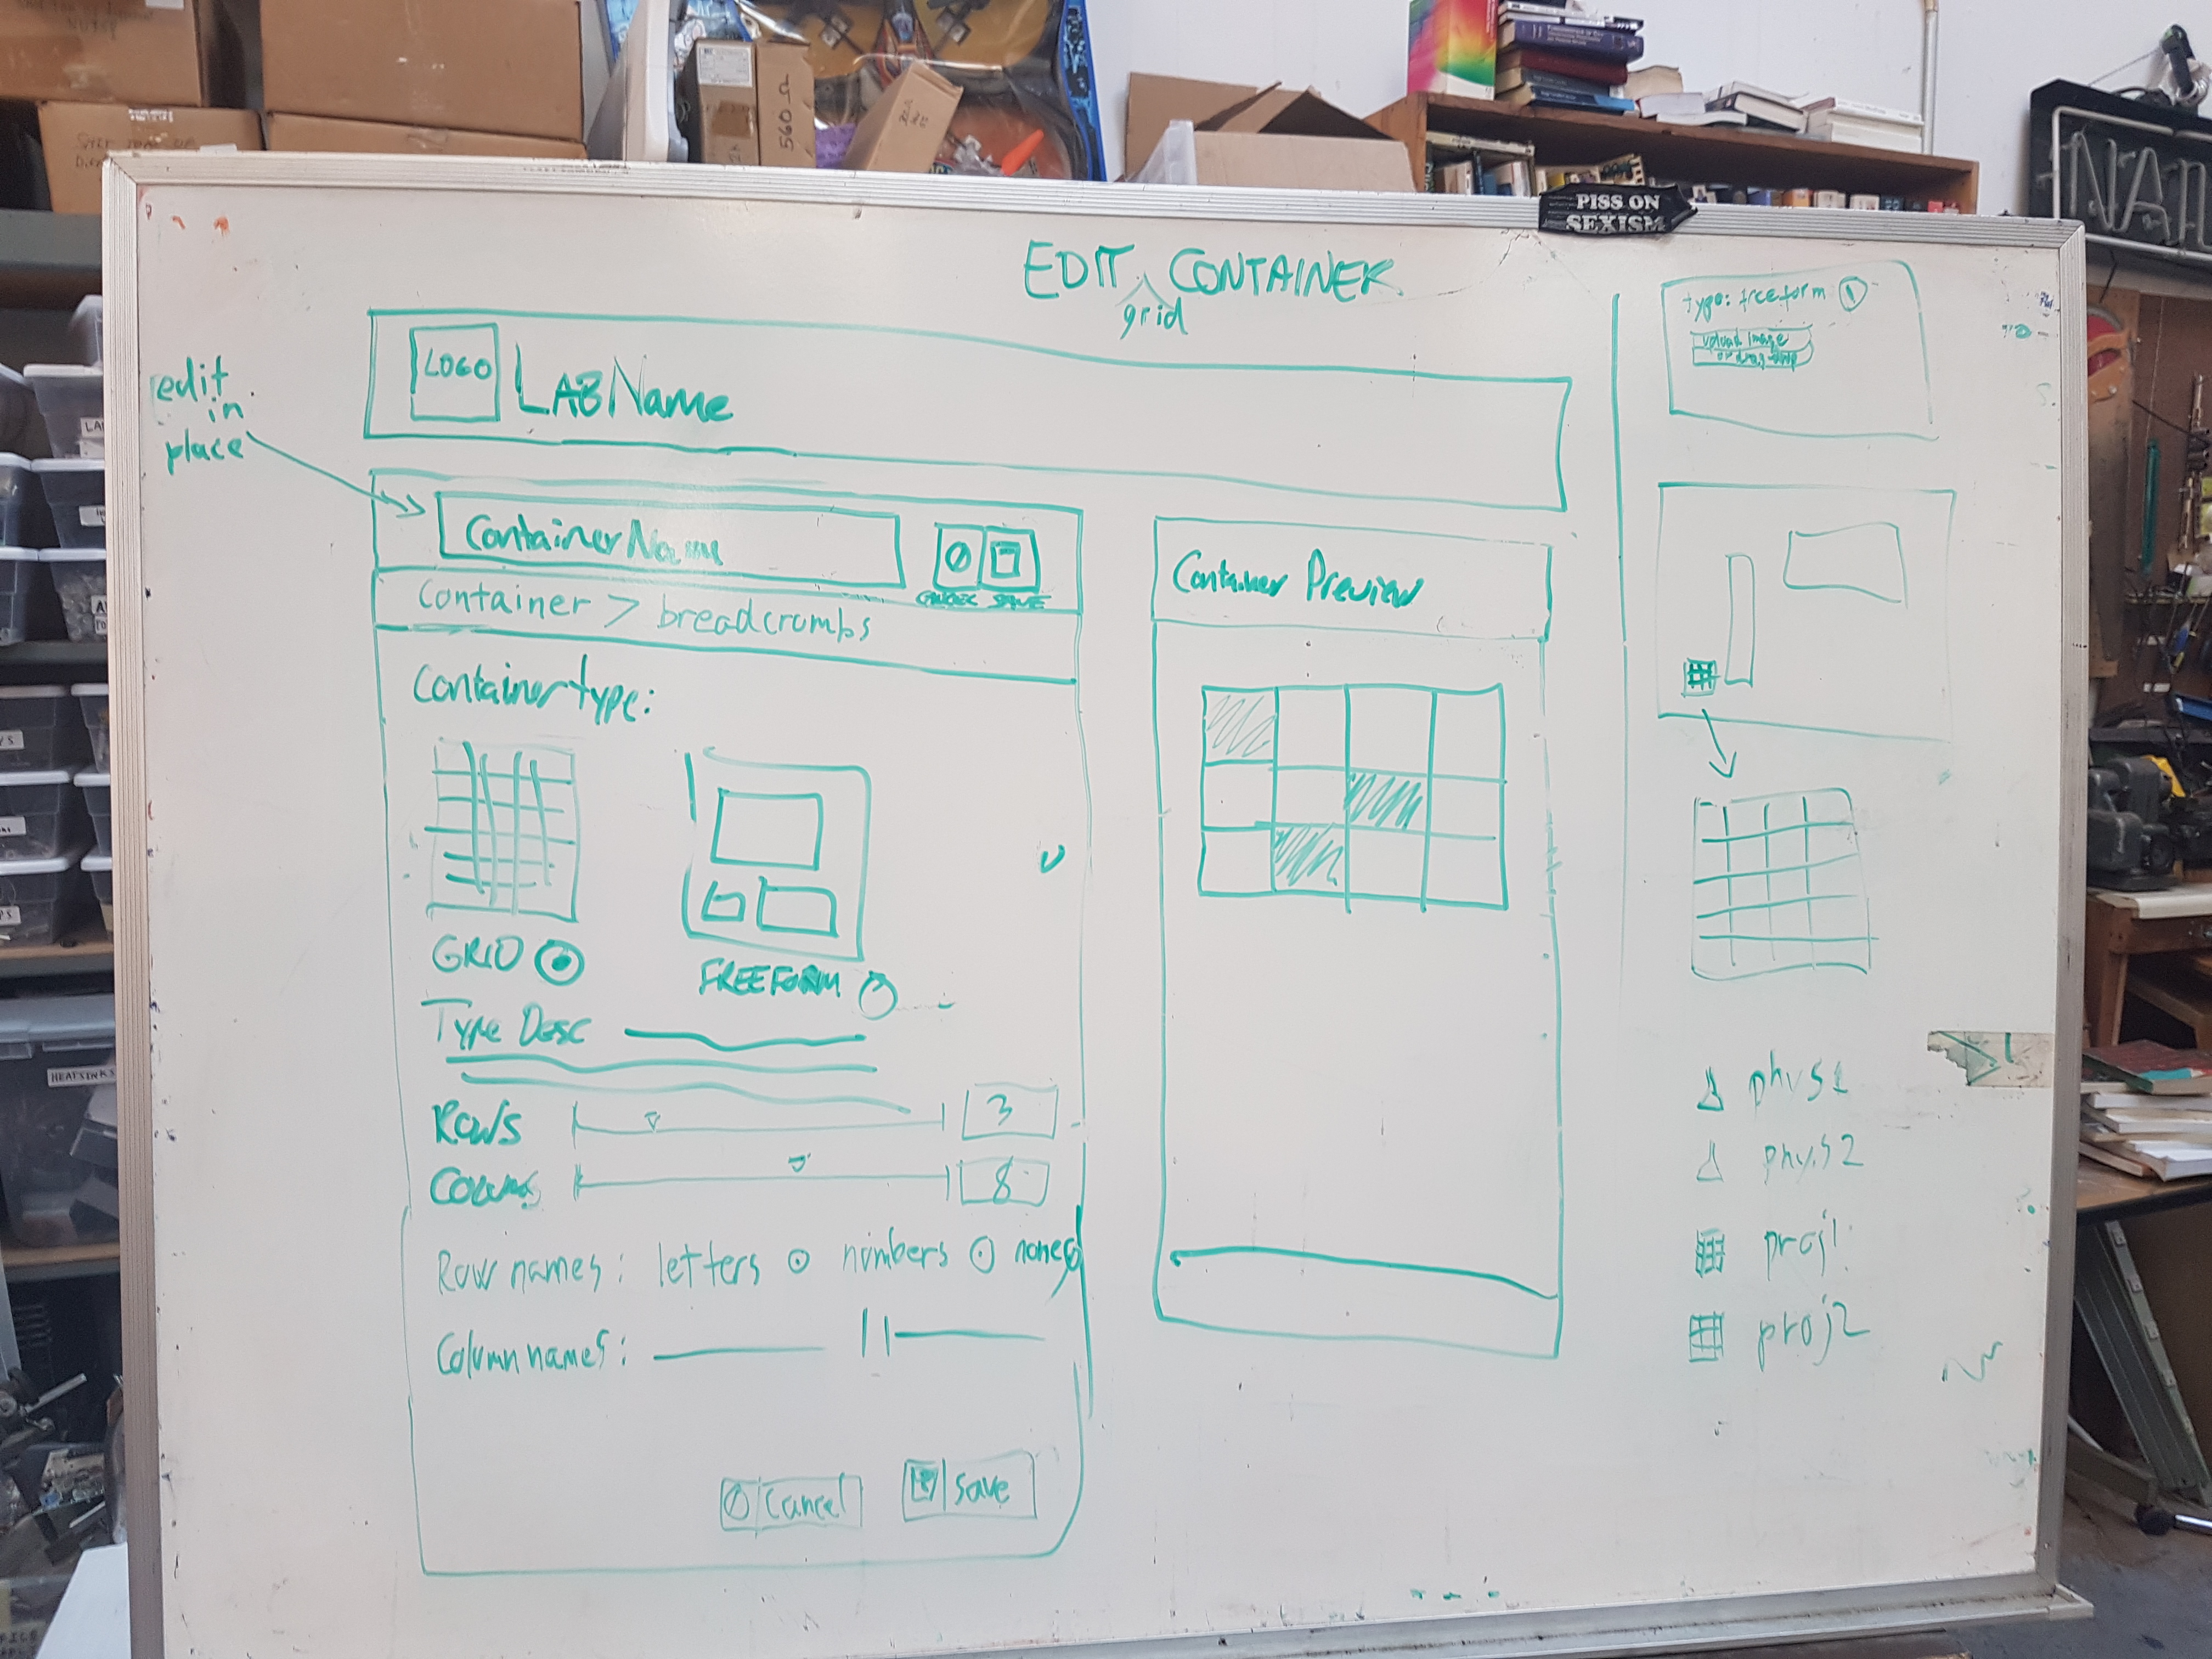 560 Ω
PISS ON
SEXISM
EDIT CONTAINER
grid
LOGO
LAB Name
edit
in
place
Container Name
CANCEL SAVE
Container > breadcrumbs
Container type:
GRID
FREEFORM
Type Desc
Rows 3
8
Row names: letters numbers none
Column names:
Cancel
Save
Container Preview
type: freeform
upload image
or drag-drop
phys1
phys2
proj1
proj2
HEATSINKS